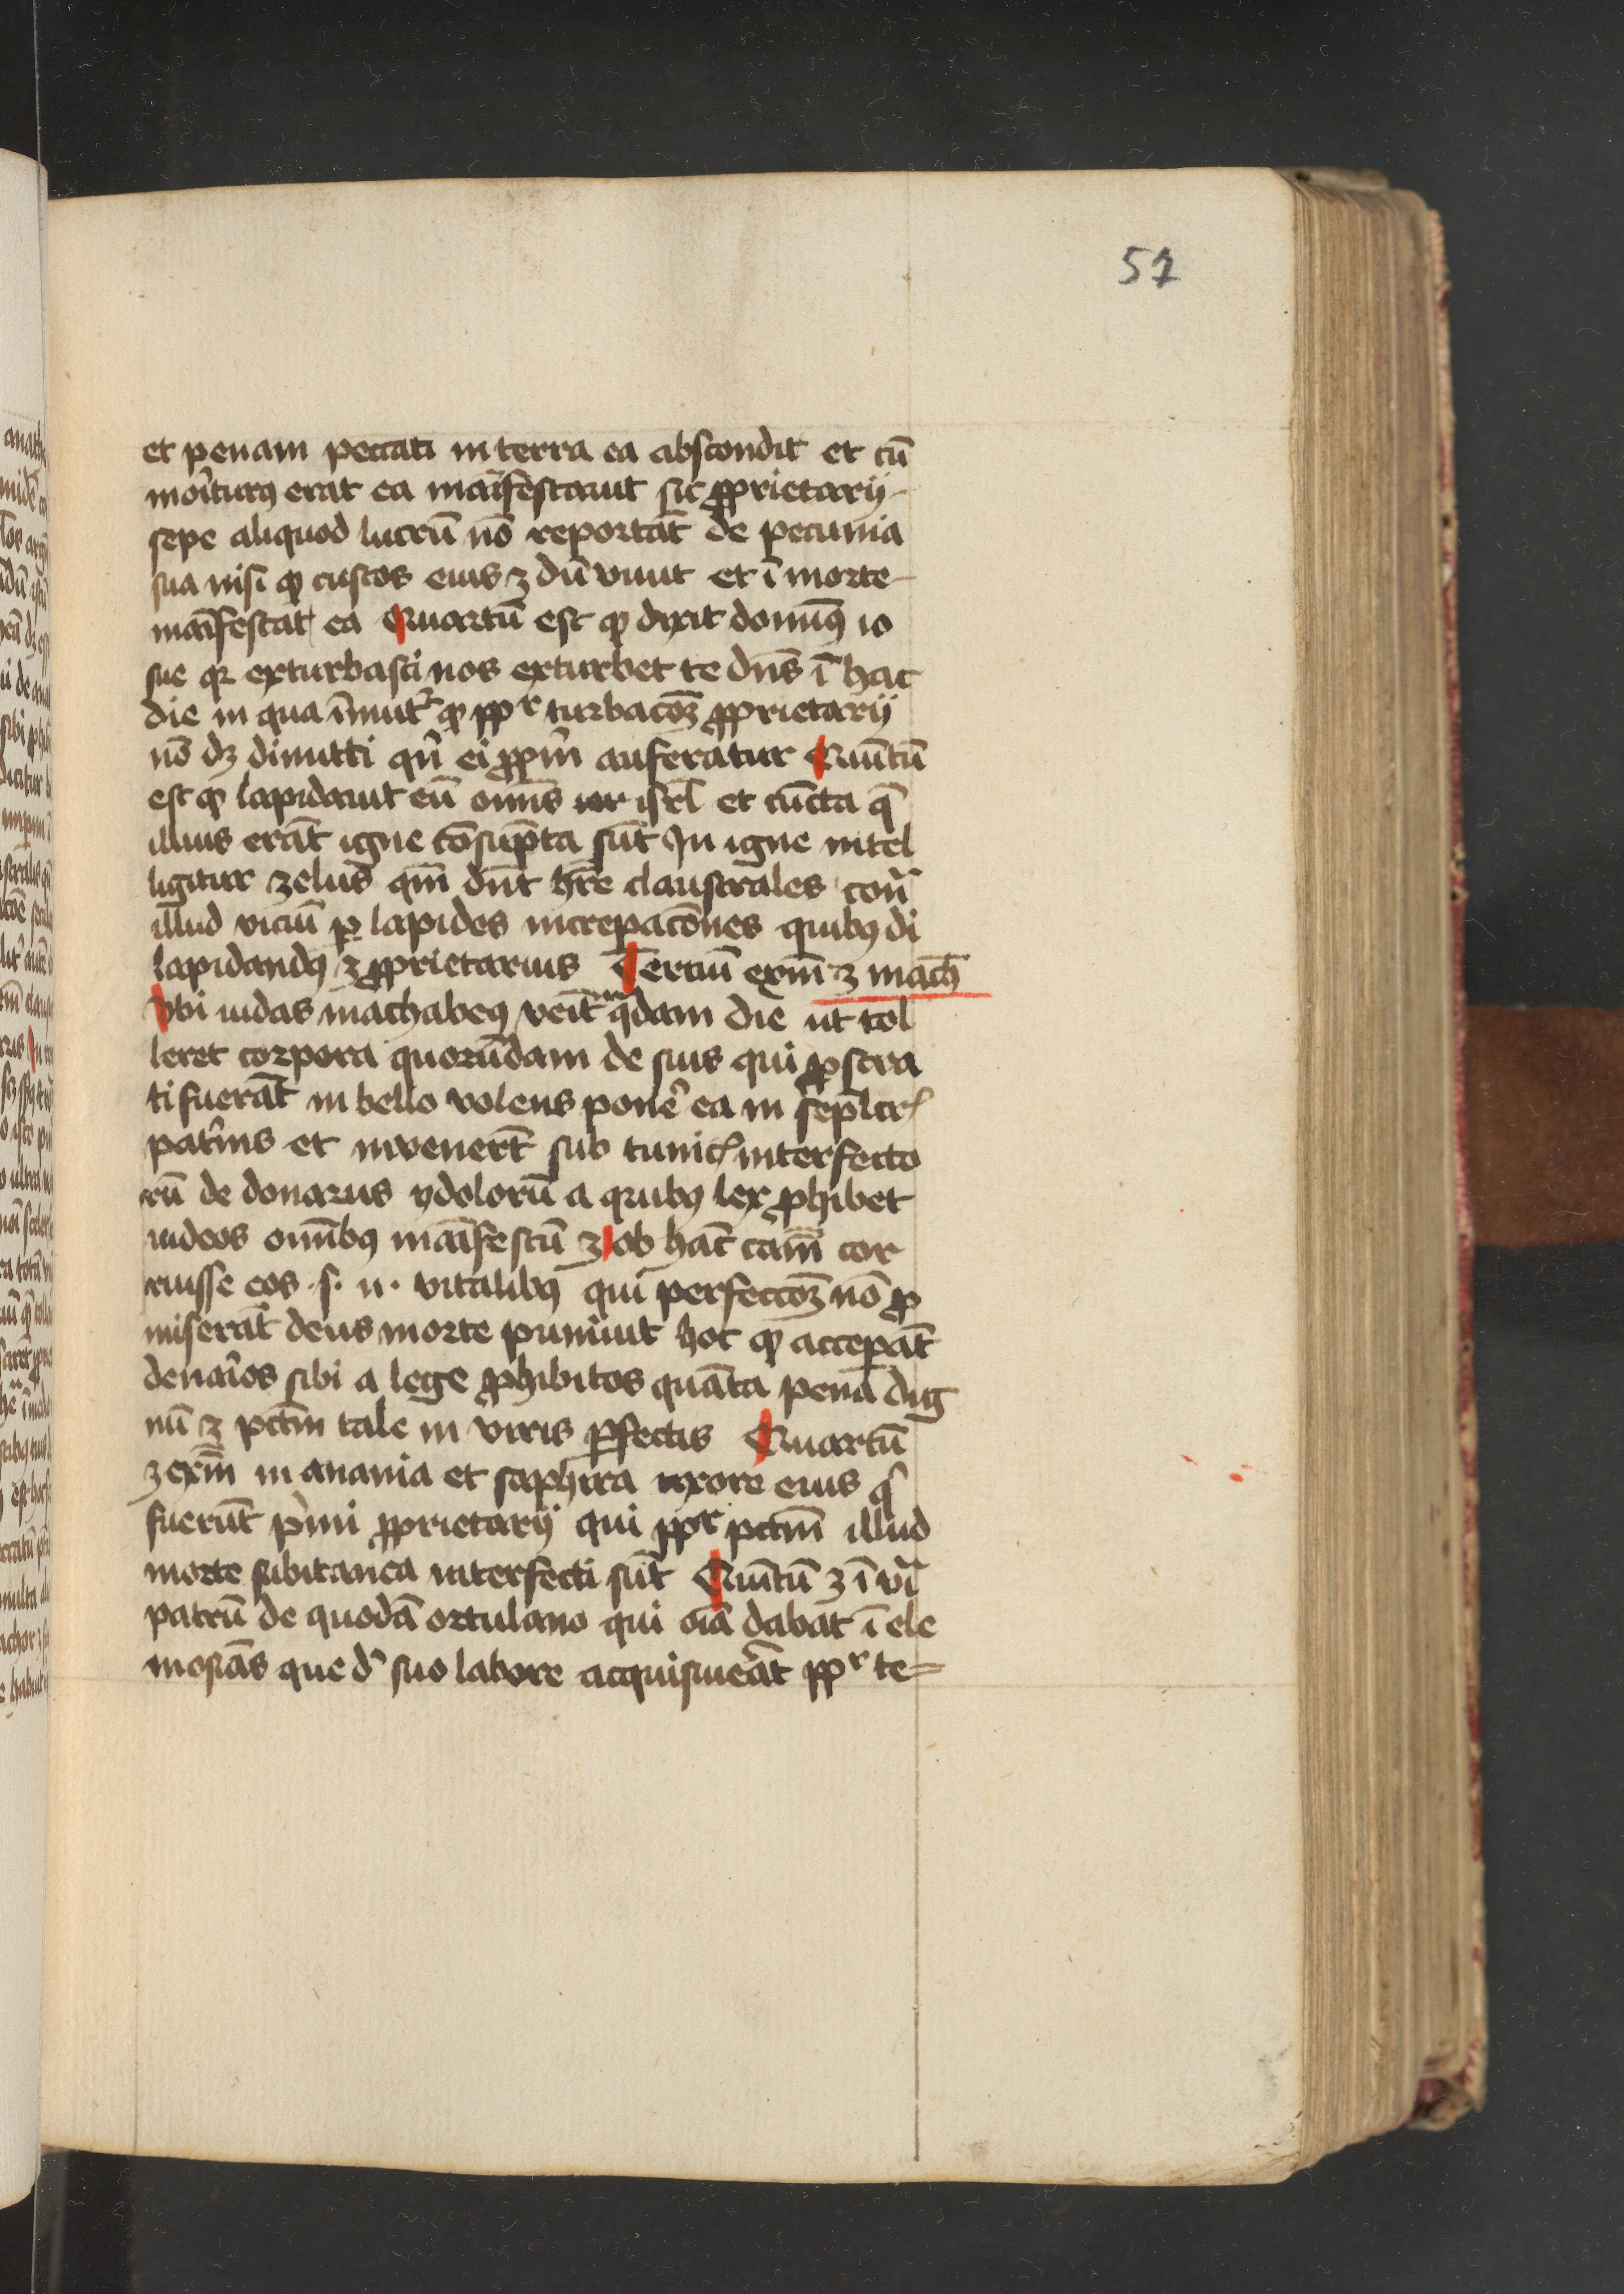 57
et penam peccati in terra ea abscondit et cū
moīturꝰ erat ea maīfestauit sic ꝓprietarij
sepe aliquod lucrū nō reportāt de pecunia
sua nisi ꝙ custos eius ʒ dū viuit et ī morte
maīfestat ea Quartū est ꝙ dixit domīꝰ io
sue qꝛ exturbasti nos exturbet te dn̄s ī hac
die in qua īnuitᷣ ꝙ ꝓpᷣ turbacōꝫ ꝓprietarij
nō dꝫ dimitti qn̄ ei ꝓpm̄ auferatur Quītū
est ꝙ lapidauit eū omīs isrl̄ et cūcta q̄
illius erāt igne cōsūpta sūt In igne intel
ligitur zelus qm̄ dn̄t hr̄e claustrales cont̄
illud viciū ꝑ lapides increpacōnes quibꝰ di
lapidandꝰ ʒ ꝓprietarius Tertiū exm̄ ʒ mach̄
Vbi iudas machabeꝰ veīt q̄dam die ut tol
leret corpora quorūdam de suis qui ꝓstra
ti fuerāt in bello volens pone᷑ ea in sepl̄crꝭ
pat᷑nis et invenerūt sub tunicꝭ interfecto
rū de donarijs ydolorū a quibꝰ lex ꝓhibet
iudeos omībꝰ maīfestū ʒ ob hāc cām̄ cor
ruisse eos .s. ii. vitalibꝰ qui perfectōꝫ nō ꝓ
miserāt deus morte puniuit hoc ꝙ acceperāt
denar̄ios sibi a lege ꝓhibitos quāta penā dig
nū ʒ pctm̄ tale in viris ꝑfectis Quartū
ʒ exm̄ in anania et saphira uxore eius qͥ
fuerūt pͥmi ꝓprietarij qui ꝓpᷣ pctm̄ illud
morte subitanea interfecti sūt Quītū ʒ ī vī
patrū de quodā ortulano qui oīa dabat ī ele
mosīas que d᷑ suo labore acquisiue᷑āt ꝓpᷣ te=